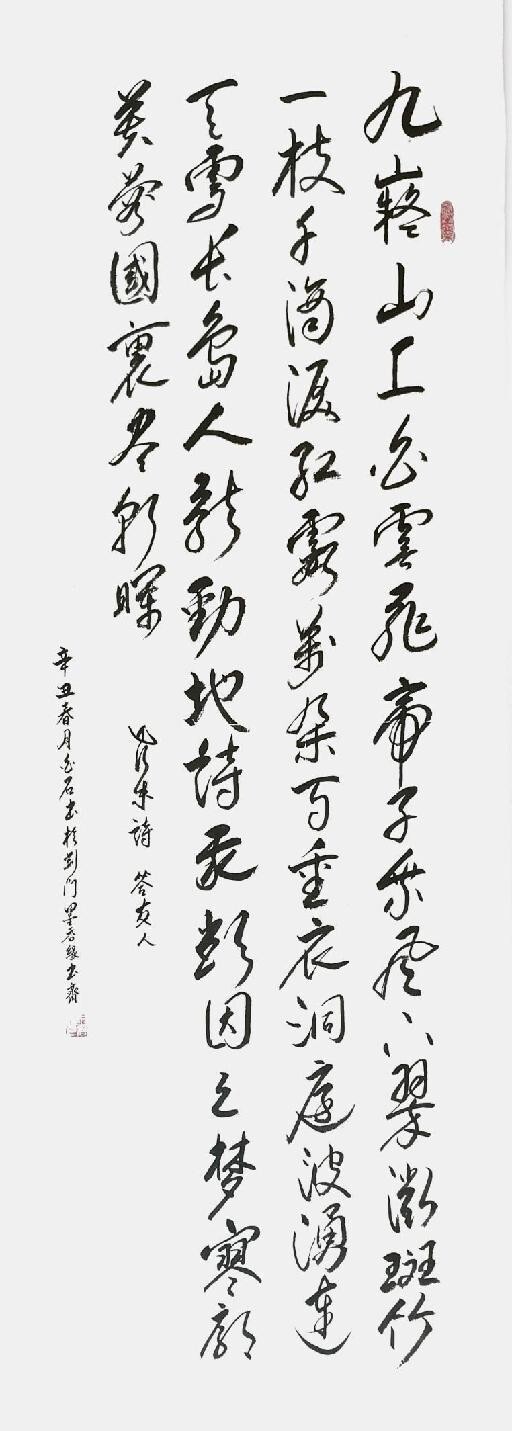 九嶷山上白雲飛帝子乘風下翠微斑竹
一枝千滴淚紅霞萬朵百重衣洞庭波湧連
天雪長島人歌動地詩我欲因之梦寥廓
芙蓉國裏尽朝暉
毛澤東詩 答友人
辛丑春月白石书於门墨香緣书齋